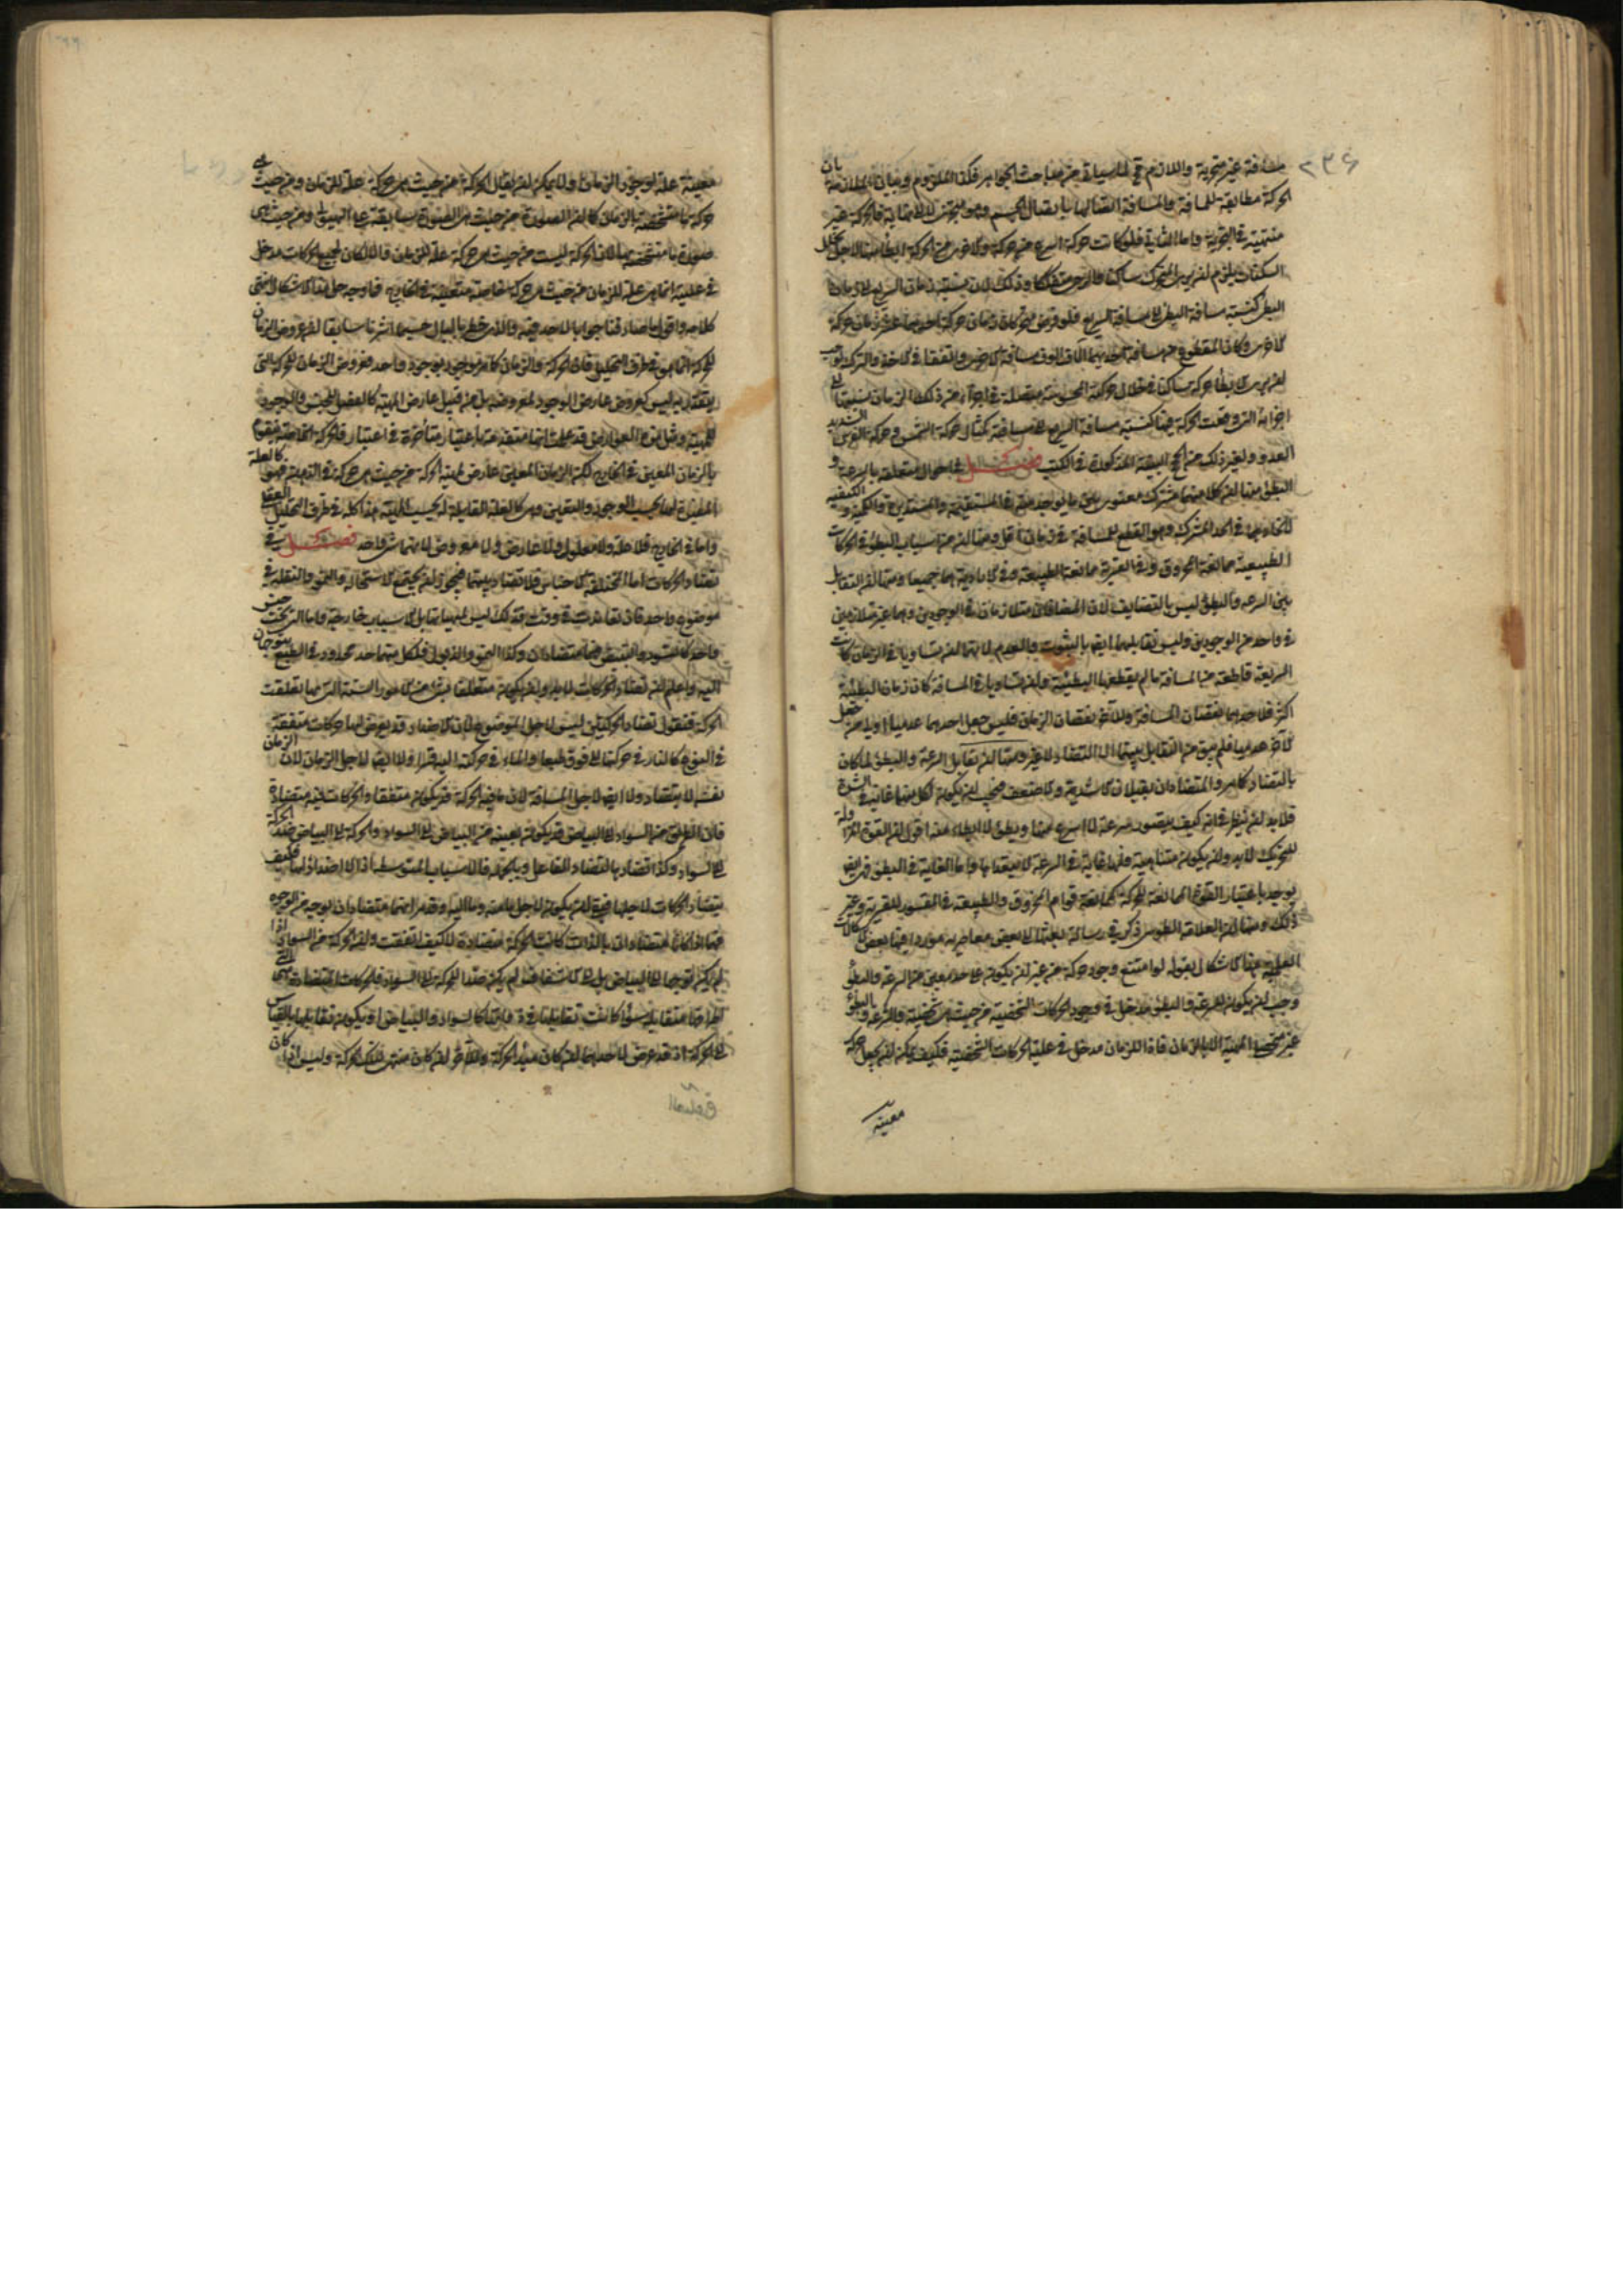 ۲۳۶
مسافة غير متجزية واللازم كما سياتي من مباحث الجواهر فكذا الملزوم وبيان الملازمة بان
الحركة مطابقة للمسافة والمسافة اتصالها باتصال الجسم وهو يتجزى لا الى نهاية فالحركة غير
منتهية في التجزية واما الثاني فلو كانت حركة اسرع من حركة ولا يكون من الحركة البطيئة الا لاجل تخلل
السكنات يلزم ان يرى المتحرك ساكنا وذلك لان نسبة زمان السريع الى زمان
البطئ كنسبة مسافة البطئ الى مسافة السريع فلو فرض متحركان زمان حركة احدهما عشر زمان حركة
الاخر وكان المقطوع من مسافة احديهما آلاف الوف مسافة الاخرى
اجزائه التي وقعت الحركة فيها كنسبة مسافة السريع الى مسافته كمثال حركة الشمس وحركة الفرس الشديد
العدو ولغير ذلك من الحجج البينة المذكورة في الكتب فصل في احوال متعلقة بالسرعة و
البطؤ منها ان كلا منهما مشترك معنوى بين ما يوجد منه في المستقيمة والمستديرة والكمية والكيفية
لاتحادهما في الحد المشترك وهو القطع للمسافة في زمان اقل ومنها ان من اسباب البطؤ في الحركات
الطبيعية ممانعة المخروق وفى القسرية ممانعة الطبيعة وفى الارادية هما جميعا ومنها ان التقابل
بين السرعة والبطؤ ليس بالتضايف لان المضافين متلازمان في الوجودين وهما غير متلازمين
في واحد من الوجودين وليس تقابلهما ايضا بالثبوت والعدم لانهما ان تساويا في الزمان كانت
السريعة قاطعة من المسافة ما لم يقطعها البطيئة وان تساويا في المسافة كان زمان البطيئة
اكثر فلاحدهما نقصان المسافة وللآخر نقصان الزمان فليس جعل احدهما عدميا اولى من جعل
الآخر عدميا فلم يبق من التقابل بينهما الا التضاد لا غير ومنها ان تقابل السرعة والبطؤ لما كان
بالتضاد كما مر والمتضادان يقبلان الاشدية والاضعف فيجب ان يكون لكل منهما غاية في الشدة
فلا بد ان ينظر في انه كيف يتصور سرعة لا اسرع منها وبطؤ لا ابطاء منه اقول ان القوى المزاولة
للتحريك لا بد وان يكون متناهية فلها غاية في السرعة لا يتعداها واما الغاية في البطؤ فربما
يوجد باعتبار القوة الممانعة للحركة كممانعة قوام المخروق والطبيعة في المقسور للقسرية وغير
ذلك ومنها ان العلامة الطوسى ذكر في رسالة بعثها الى بعض معاصريه موردا فيها بعض الاشكالات
العلمية هذا الاشكال بقوله لو امتنع وجود حركة من غير ان يكون على حد معين من السرعة والبطؤ
وجب ان يكون للسرعة والبطؤ مدخل في وجود الحركات الشخصية من حيث هي شخصية والسرعة والبطؤ
غير متحصلة المهية الا بالزمان فاذا للزمان مدخل في علية الحركات الشخصية فكيف يمكن ان يجعل حركة
معينة
معينة علة لوجود الزمان ولا يمكن ان يقال الحركة من حيث هي حركة علة للزمان ومن حيث هي
حركة ما متشخصة بالزمان كما ان الصورة من حيث هي الصورة سابقة على الهيولى ومن حيث هي
صورة ما متشخصة بها لان الحركة ليست من حيث هي حركة علة للزمان والا لكان لجميع الحركات مدخل
في علية انما هي علة للزمان من حيث هي حركة خاصة متعينة في الخارج فما وجه حل هذا الاشكال انتهى
كلامه واقول ما صادفنا جوابا لاحد فيه والذي خطر بالبال حسبما اشرنا سابقا ان عروض الزمان
للحركة انما هو في ظرف التحليل فان الحركة والزمان كما مر موجود بوجود واحد فعروض الزمان للحركة التي
يتقدر به ليس كعروض عارض الوجود لمعروضه بل من قبيل عارض المهية كالفصل للجنس والوجود
للمهية ومثل هذه العوارض قد علمت انها متقدمة باعتبار متأخرة في اعتبار فالحركة الخاصة يتقوم
بالزمان المعين في الخارج لكن الزمان المعين عارض لمهية الحركة من حيث هي حركة في الذهن فهو كالعلة
المفيدة لها بحسب الوجود والتعين وهي كالعلة القابلية له بحسب المهية هذا كله في ظرف التحليل العقلى
واما في الخارج فلا علة ولا معلول ولا عارض ولا معروض لانهما شئ واحد فصل في
تضاد الحركات اما المختلفة الاجناس فلا تضاد بينها فيجوز ان يجتمع الاستحالة والنمو والنقلة في
موضوع واحد فان تعاندت في وقت فذلك ليس لمهياتها بل لاسباب خارجية واما التي تحت جنس
واحد كالتسود والتبيض فهما متضادان وكذا النمو والذبول فلكل منهما حد محدود في الطبع يتوجهان
اليه واعلم ان تضاد الحركات لا بد وان يكون متعلقا بشئ من الامور الستة التي بها تعلقت
الحركة فنقول تضاد الحركتين ليس لاجل الموضوع لان الاضداد قد يعرض لها حركات متفقة
في النوع كالنار في حركتها الى فوق طبعا والماء في حركته اليه قسرا ولا ايضا لاجل الزمان لان الزمان
نفسه لا يتضاد ولا ايضا لاجل المسافة لان ما فيه الحركة قد يكون متفقا والحركات فيه متضادة
فان الطريق من السواد الى البياض قد يكون بعينه من البياض الى السواد والحركة الى البياض ضد الحركة
الى السواد وكذا تضادها لتضاد الفاعل وبالجملة فالاسباب المتوسطة اذا لا اضداد لها فكيف
يتضاد الحركات لاجلها فبقى ان يكون لاجل ما منه وما اليه وقد مر انهما متضادان بوجه من الوجوه
فهما اذا كانا متضادان بالذات كانت الحركة متضادة لا كيف اتفقت ولان الحركة من السواد اذا
لم يكن توجها الى البياض بل الى الاشفاف لم يكن ضدا للحركة الى السواد فالحركات المتضادة هي التي
اطرافها متقابلة سواء كانت تقابلها في ذواتها كالسواد والبياض او يكون تقابلها بالقياس
الى الحركة اذ قد عرض لاحدهما ان كان مبدء الحركة وللآخر ان كان منتهى لتلك الحركة وليس اذا كان